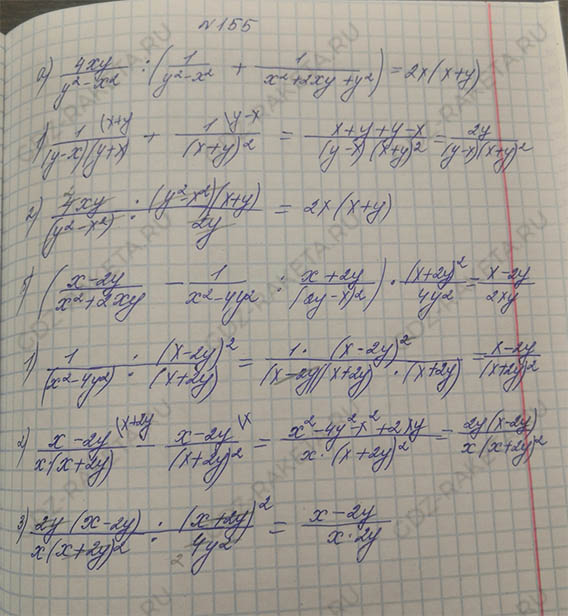 №155
а) 4xy/(y²-x²) : (1/(y²-x²) + 1/(x²+2xy+y²)) = 2x(x+y)
1) 1\x+y/((y-x)(y+x)) + 1\y-x/(x+y)² = (x+y+y-x)/((y-x)(x+y)²) = 2y/((y-x)(x+y)²)
2) 4xy/(y²-x²) : (y²-x²)(x+y)/2y = 2x(x+y)
б) ((x-2y)/(x²+2xy) - 1/(x²-4y²) : (x+2y)/(2y-x)²) · (x+2y)²/4y² = (x-2y)/2xy
1) 1/(x²-4y²) : (x-2y)²/(x+2y) = 1·(x-2y)²/((x-2y)(x+2y)·(x+2y)) = (x-2y)/(x+2y)²
2) (x-2y)\x+2y/(x(x+2y)) - (x-2y)\x/(x+2y)² = (x²-4y²-x²+2xy)/(x·(x+2y)²) = 2y(x-2y)/(x(x+2y)²)
3) 2y(x-2y)/(x(x+2y)²) : (x+2y)²/4y² = (x-2y)/(x·2y)
GDZ-RAKETA.RU